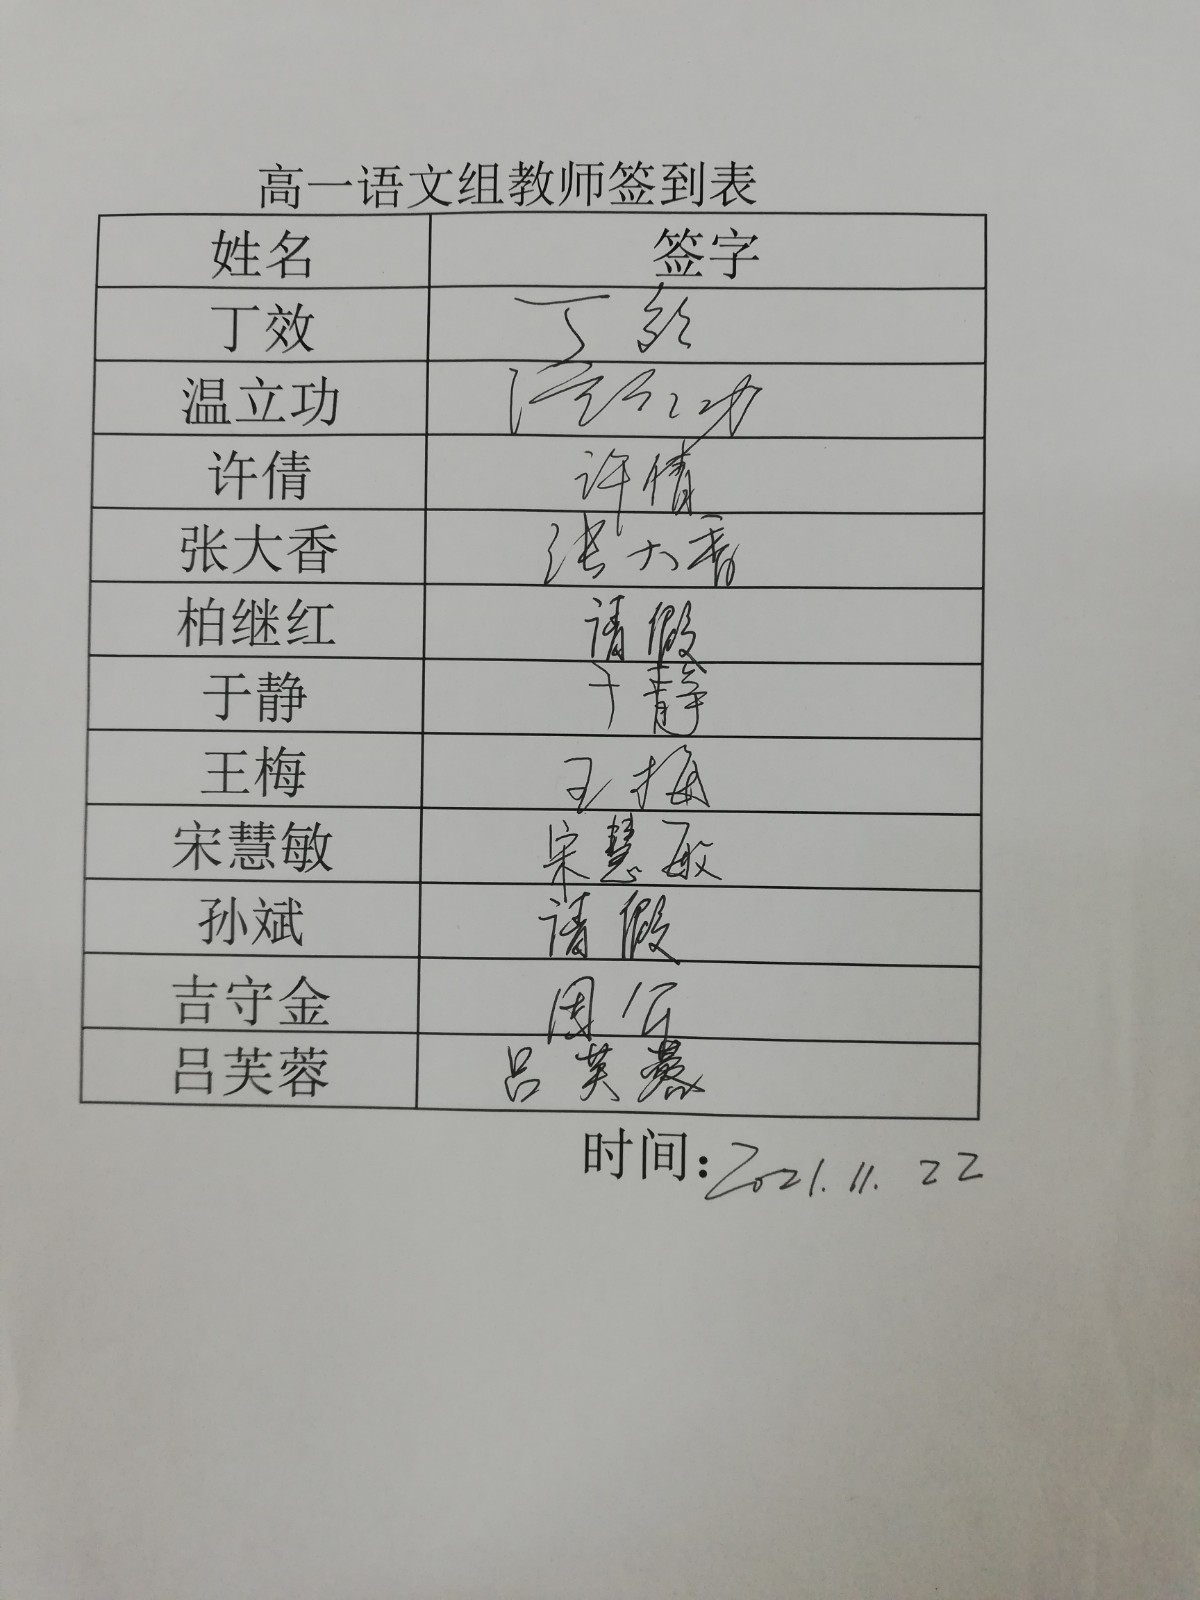 高一语文组教师签到表
姓名 签字
丁效 丁效
温立功 温立功
许倩 许倩
张大香 张大香
柏继红 请假
于静 于静
王梅 王梅
宋慧敏 宋慧敏
孙斌 请假
吉守金
吕芙蓉 吕芙蓉
时间：2021.11.22